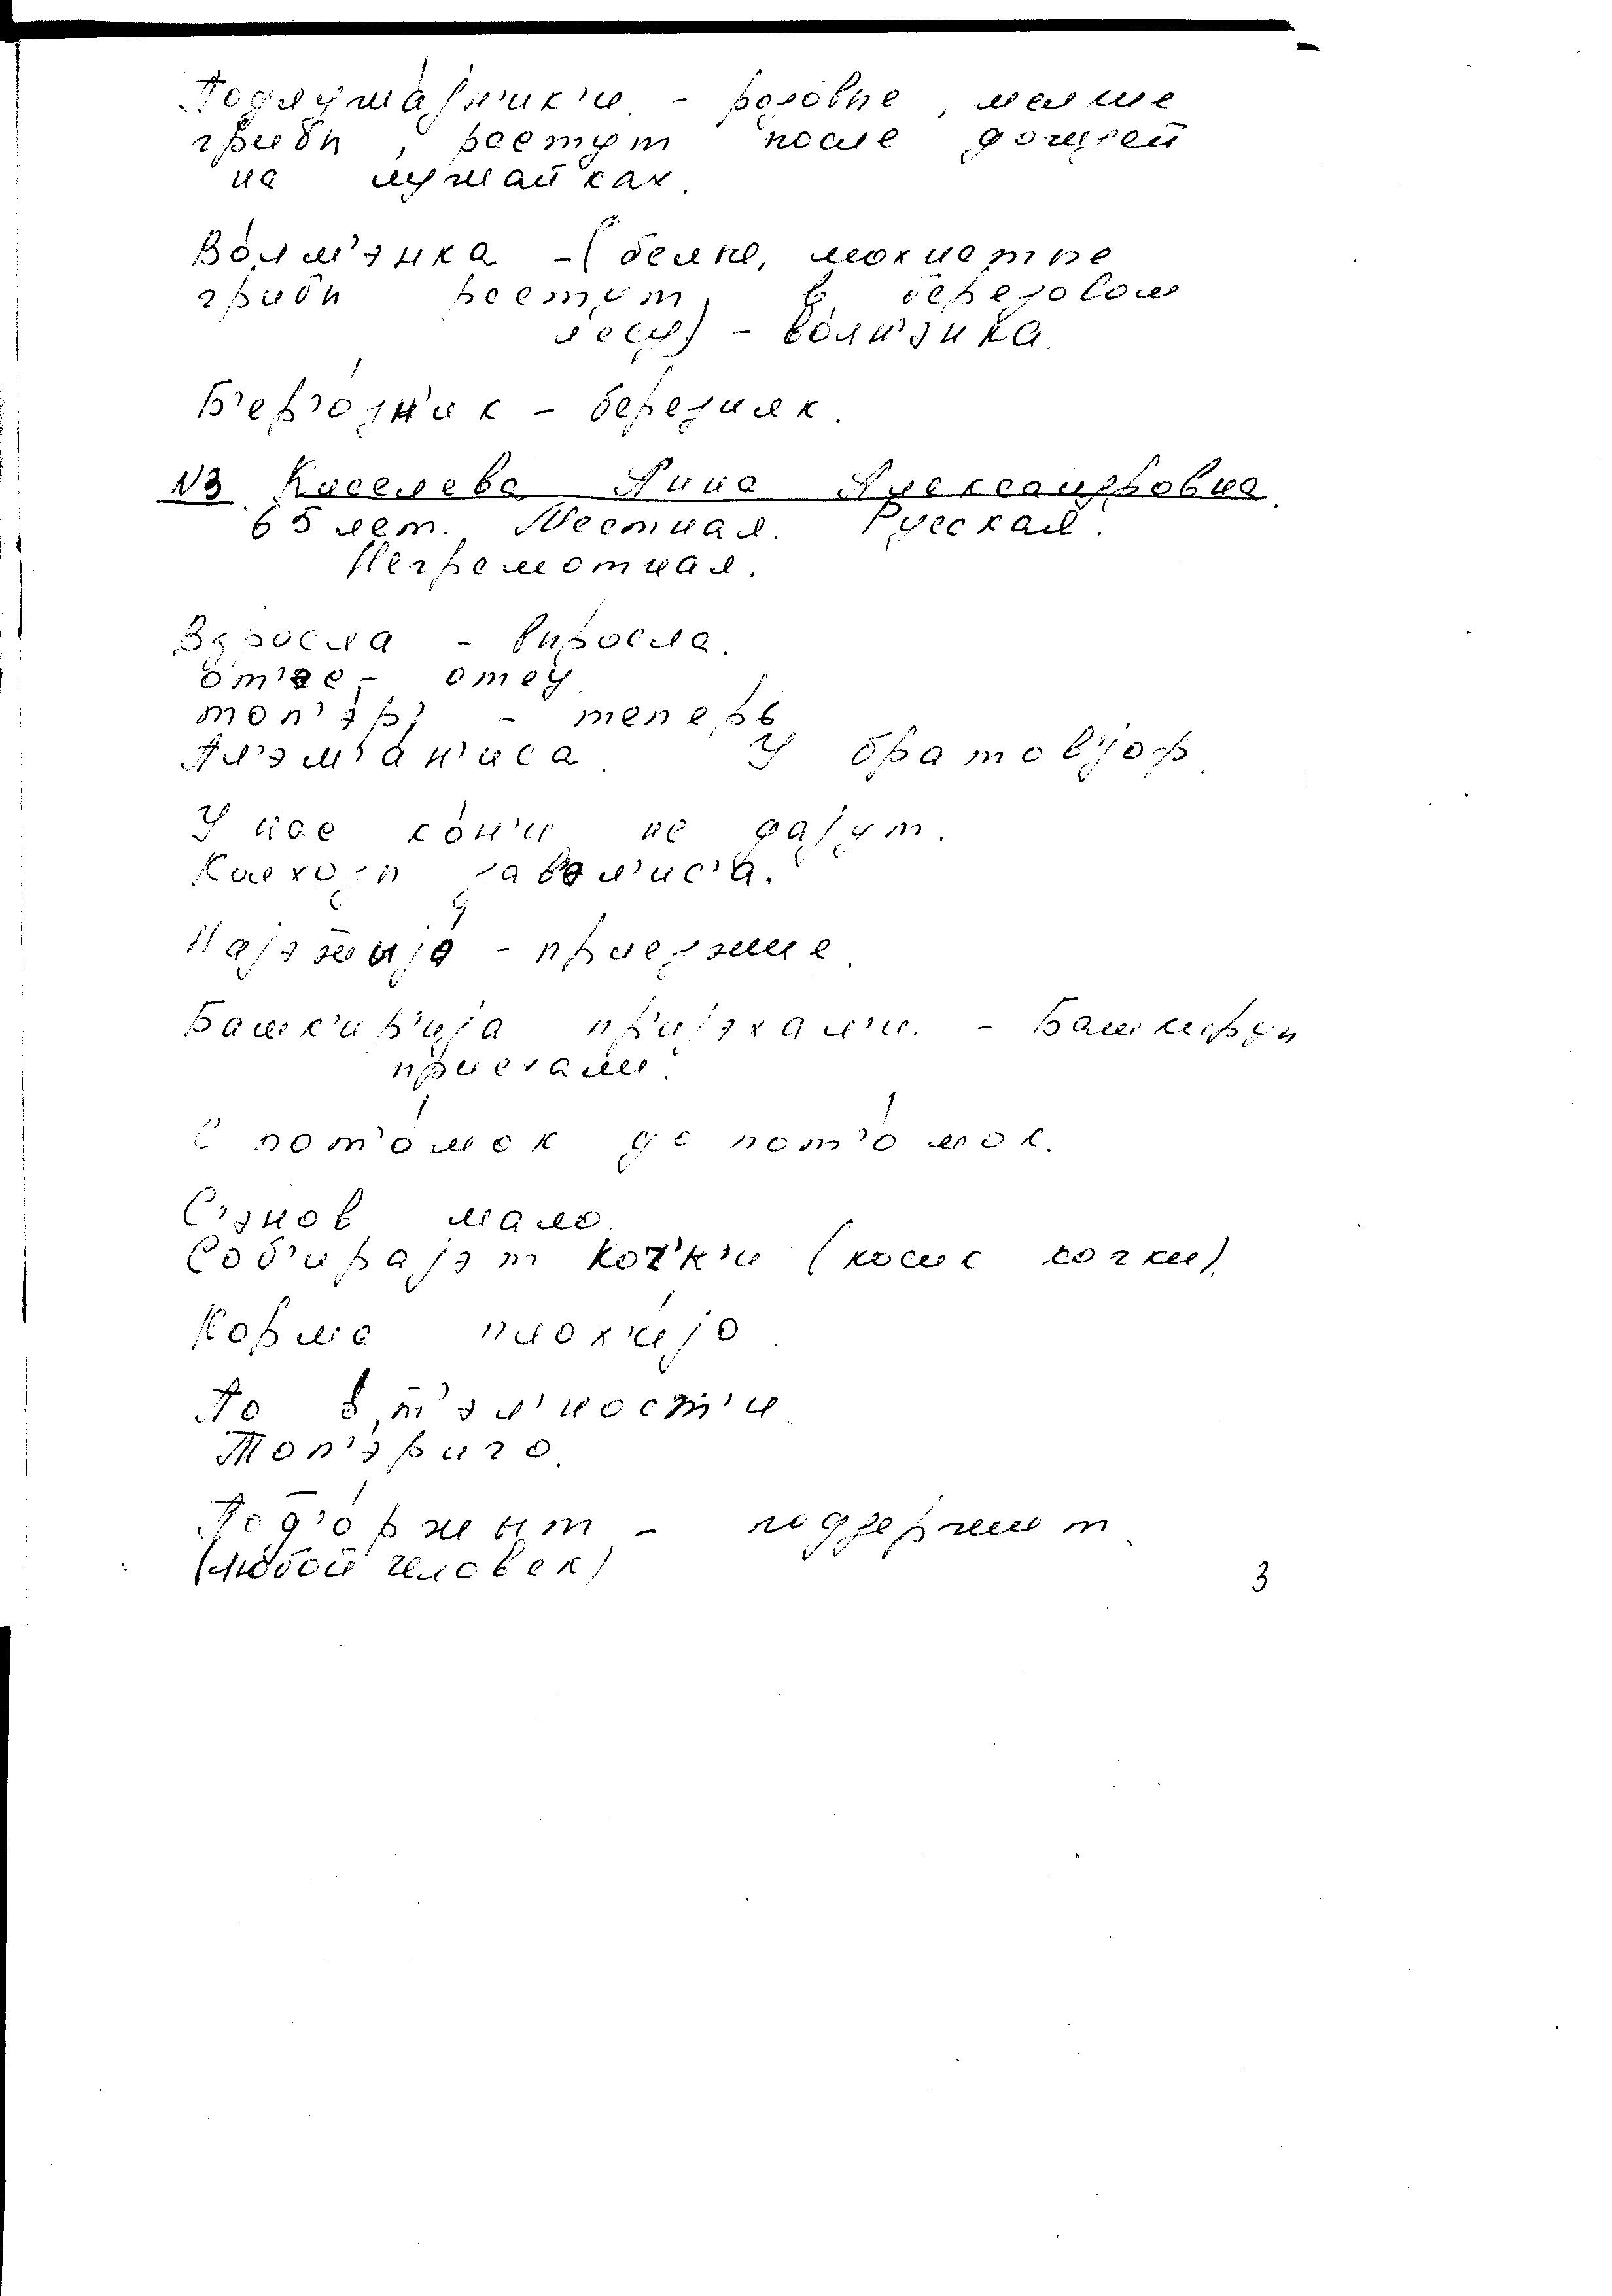 Подлужа́јн'ик'и - розовые, малые
грибы, растут после дождей
на лужайках.
Во́лм'энка - (белые, мохнатые
грибы растут в березовом
лесу) - во́лн'энка.
Б'ер'о́зн'ик - березняк.
№3 Киселева Анна Александровна.
65 лет. Местная. Русская.
Неграмотная.
Взросла - выросла.
от'ес - отец
топ'э́р' - теперь
Пл'эм'а́н'иса. У братов'јоф.
У нас ко́н'и не дајут.
Колхозы завел'ис'а.
Најэжыјо - приезжие.
Башк'ир'ија пр'ијэхал'и. - Башкирцы
приехали.
С пот'о́мок до пот'о́мок.
С'энов мало.
Соб'ирајэт коч'к'и (косит кочки).
Корма плох'и́јо.
По о́т'эл'ност'и
Топ'эриго.
Под'о́ржыт - поддержит.
(любой человек)
3